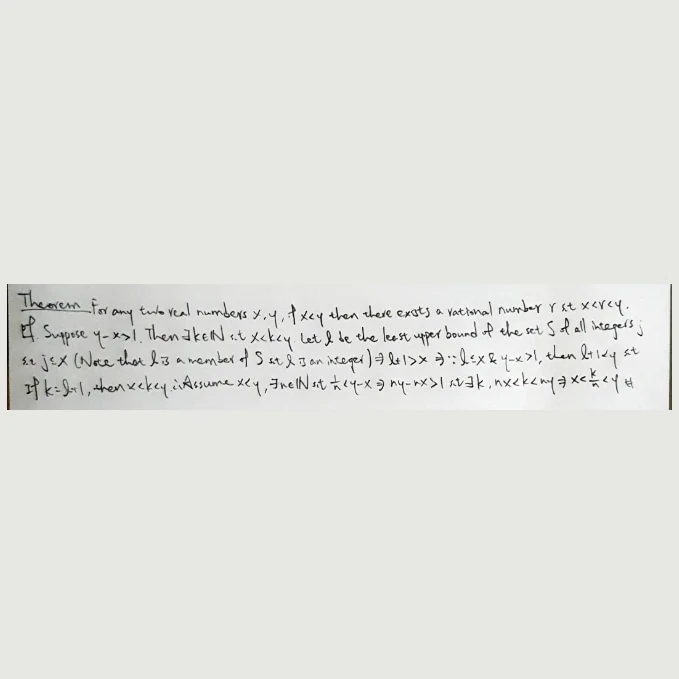 Theorem For any two real numbers x, y, if x<y then there exists a rational number r st x<r<y.
Pf. Suppose y-x>1. Then ∃k∈IN s.t x<k<y. Let l be the least upper bound of the set S of all integers j
s.t j≤x (Note that l is a member of S st l is an integer) ⇒ l+1>x ⇒ ∵ l≤x & y-x>1, then l+1<y st
If k=l+1, then x<k<y ∴ Assume x<y, ∃n∈IN st 1/n<y-x ⇒ ny-nx>1 st ∃k, nx<k<ny ⇒ x<k/n<y #